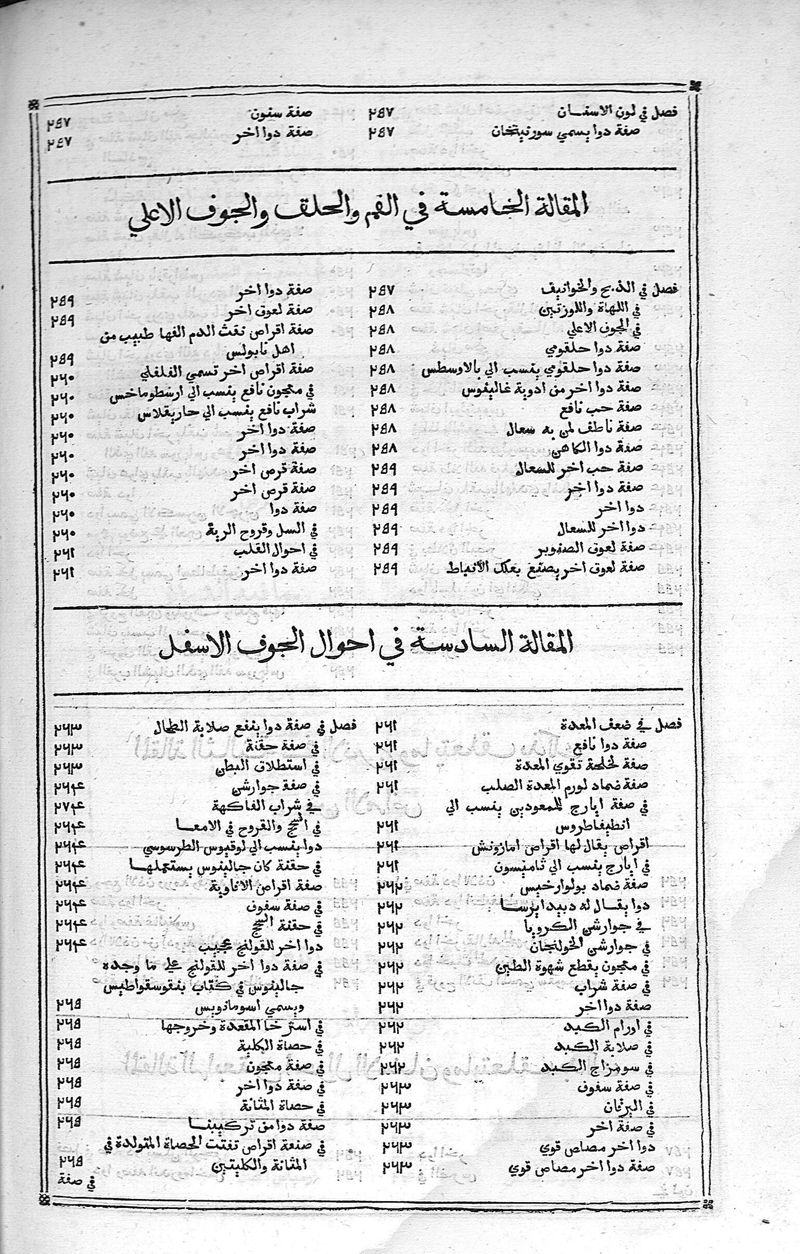 فصل في لون الاسنان ٢٤٧
صفة دوا يسمي سورنيخان ٢٤٧
صفة سنون ٢٤٧
صفة دوا اخر ٢٤٧
المقالة الخامسة في الفم والحلق والجوف الاعلي
فصل في الذبح والخوانيف ٢٤٧
في اللهاة واللوزتين ٢٤٨
في الجوف الاعلي ٢٤٨
صفة دوا حلقومي ٢٤٨
صفة دوا حلقومي ينسب الي بالاوسطس ٢٤٨
صفة دوا اخر من ادوية غالينوس ٢٤٨
صفة حب نافع ٢٤٨
صفة ناطف لمن به سعال ٢٤٨
صفة دوا الكاهن ٢٤٨
صفة حب اخر للسعال ٢٤٩
صفة دوا اخر ٢٤٩
دوا اخر ٢٤٩
دوا اخر للسعال ٢٤٩
صفة لعوق الصنوبر ٢٤٩
صفة لعوق اخر يصنع بعلك الأنباط ٢٤٩
صفة دوا اخر ٢٤٩
صفة لعوق اخر ٢٤٩
صفة اقراص نفث الدم الفها طبيب من
اهل نابولس ٢٤٩
صفة اقراص اخر تسمي الفلفلي ٢٦٠
في معجون نافع ينسب الي ارسطوماخس ٢٦٠
شراب نافع ينسب الي حاريقلاس ٢٦٠
صفة دوا اخر ٢٦٠
صفة دوا اخر ٢٦٠
صفة قرص اخر ٢٦٠
صفة قرص اخر ٢٦٠
صفة دوا ٢٦٠
في السل وقروح الرية ٢٦٠
في احوال القلب ٢٦١
صفة دوا اخر ٢٦١
المقالة السادسة في احوال الجوف الاسفل
فصل في ضعف المعدة ٢٦١
صفة دوا نافع ٢٦١
صفة لخلخة تقوي المعدة ٢٦١
صفة ضماد لورم المعدة الصلب ٢٦١
في صفة ايارج للممعودين ينسب الي
انطيفاطروس ٢٦١
اقراص يقال لها اقراص امازونش ٢٦١
في ايارج ينسب الي ثاميسون ٢٦١
صفة ضماد بولوارخيس ٢٦٢
دوا يقال له دبيد ايرسا ٢٦٢
في جوارشن الكرويا ٢٦٢
في جوارشن الخولنجان ٢٦٢
في معجون يقطع شهوة الطين ٢٦٢
في صفة شراب ٢٦٢
صفة دوا اخر ٢٦٢
في اورام الكبد ٢٦٢
في صلابة الكبد ٢٦٢
في سو مزاج الكبد ٢٦٢
في صفة سفوف ٢٦٣
في اليرقان ٢٦٣
في صفة اخر ٢٦٣
دوا اخر مصاص قوي ٢٦٣
صفة دوا اخر مصاص قوي ٢٦٣
فصل في صفة دوا ينفع صلابة الطحال ٢٦٣
في صفة حقنة ٢٦٣
في استطلاق البطن ٢٦٣
في صفة جوارشن ٢٦٤
في شراب الفاكهة ٢٧٤
في السحج والقروح في الامعا ٢٦٤
دوا ينسب الي لوقيوس الطرسوسي ٢٦٤
في حقنة كان جالينوس يستعملها ٢٦٤
صفة اقراص الافاوية ٢٦٤
في صفة سفوف ٢٦٤
في حقنة السحج ٢٦٤
دوا اخر للقولنج عجيب ٢٦٤
في صفة دوا اخر للقولنج علي ما وجده
جالينوس في كتاب ينقوسقواطيس
ويسمي اسومانويس ٢٦٥
في استرخا المقعدة وخروجها ٢٦٥
في حصاة الكلية ٢٦٥
في صفة معجون ٢٦٥
في صفة دوا اخر ٢٦٥
في حصاة المثانة ٢٦٥
صفة دوا من تركيبنا ٢٦٥
في صنعة اقراص تفتت الحصاة المتولدة في
المثانة والكليتين ٢٦٥
في صفة